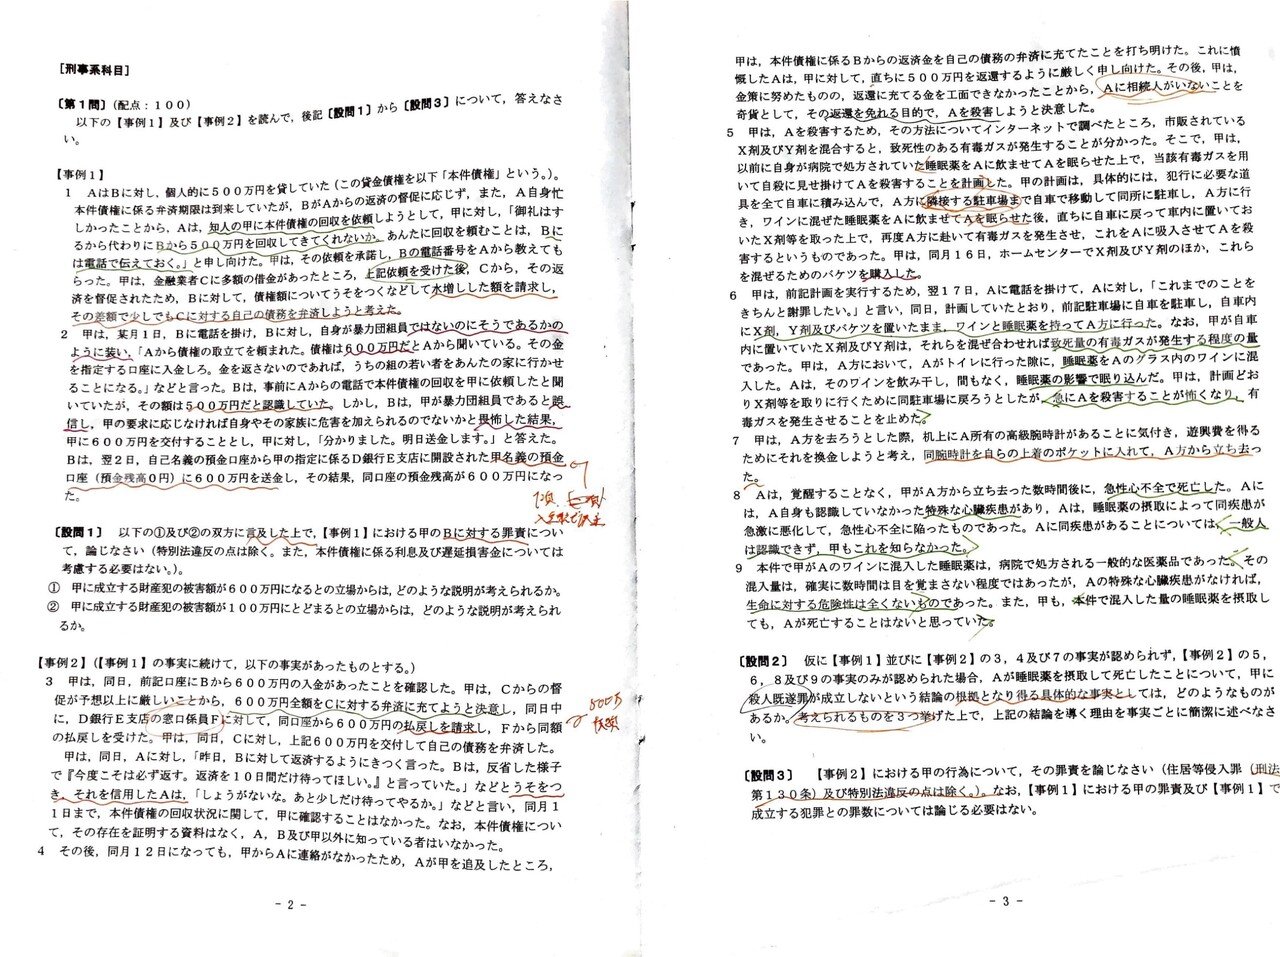 〔刑事系科目〕
〔第１問〕（配点：１００）
以下の【事例１】及び【事例２】を読んで，後記〔設問１〕から〔設問３〕について，答えなさ
い。
【事例１】
１　ＡはＢに対し，個人的に５００万円を貸していた（この貸金債権を以下「本件債権」という。）。
本件債権に係る弁済期限は到来していたが，ＢがＡからの返済の督促に応じず，また，Ａ自身忙
しかったことから，Ａは，知人の甲に本件債権の回収を依頼しようとして，甲に対し，「御礼はす
るから代わりにＢから５００万円を回収してきてくれないか。あんたに回収を頼むことは，Ｂに
は電話で伝えておく。」と申し向けた。甲は，その依頼を承諾し，Ｂの電話番号をＡから教えても
らった。甲は，金融業者Ｃに多額の借金があったところ，上記依頼を受けた後，Ｃから，その返
済を督促されたため，Ｂに対して，債権額についてうそをつくなどして水増しした額を請求し，
その差額で少しでもＣに対する自己の債務を弁済しようと考えた。
２　甲は，某月１日，Ｂに電話を掛け，Ｂに対し，自身が暴力団組員ではないのにそうであるかの
ように装い，「Ａから債権の取立てを頼まれた。債権は６００万円だとＡから聞いている。その金
を指定する口座に入金しろ。金を返さないのであれば，うちの組の若い者をあんたの家に行かせ
ることになる。」などと言った。Ｂは，事前にＡからの電話で本件債権の回収を甲に依頼したと聞
いていたが，その額は５００万円だと認識していた。しかし，Ｂは，甲が暴力団組員であると誤
信し，甲の要求に応じなければ自身やその家族に危害を加えられるのでないかと畏怖した結果，
甲に６００万円を交付することとし，甲に対し，「分かりました。明日送金します。」と答えた。
Ｂは，翌２日，自己名義の預金口座から甲の指定に係るＤ銀行Ｅ支店に開設された甲名義の預金
口座（預金残高０円）に６００万円を送金し，その結果，同口座の預金残高が６００万円になっ
た。
〔設問１〕　以下の①及び②の双方に言及した上で，【事例１】における甲のＢに対する罪責につい
て，論じなさい（特別法違反の点は除く。また，本件債権に係る利息及び遅延損害金については
考慮する必要はない。）。
①　甲に成立する財産犯の被害額が６００万円になるとの立場からは，どのような説明が考えられるか。
②　甲に成立する財産犯の被害額が１００万円にとどまるとの立場からは，どのような説明が考えられ
るか。
【事例２】（【事例１】の事実に続けて，以下の事実があったものとする。）
３　甲は，同日，前記口座にＢから６００万円の入金があったことを確認した。甲は，Ｃからの督
促が予想以上に厳しいことから，６００万円全額をＣに対する弁済に充てようと決意し，同日中
に，Ｄ銀行Ｅ支店の窓口係員Ｆに対して，同口座から６００万円の払戻しを請求し，Ｆから同額
の払戻しを受けた。甲は，同日，Ｃに対し，上記６００万円を交付して自己の債務を弁済した。
甲は，同日，Ａに対し，「昨日，Ｂに対して返済するようにきつく言った。Ｂは，反省した様子
で『今度こそは必ず返す。返済を１０日間だけ待ってほしい。』と言っていた。」などとうそをつ
き，それを信用したＡは，「しょうがないな。あと少しだけ待ってやるか。」などと言い，同月１
１日まで，本件債権の回収状況に関して，甲に確認することはなかった。なお，本件債権につい
て，その存在を証明する資料はなく，Ａ，Ｂ及び甲以外に知っている者はいなかった。
４　その後，同月１２日になっても，甲からＡに連絡がなかったため，Ａが甲を追及したところ，
－２－
甲は，本件債権に係るＢからの返済金を自己の債務の弁済に充てたことを打ち明けた。これに憤
慨したＡは，甲に対して，直ちに５００万円を返還するように厳しく申し向けた。その後，甲は，
金策に努めたものの，返還に充てる金を工面できなかったことから，Ａに相続人がいないことを
奇貨として，その返還を免れる目的で，Ａを殺害しようと決意した。
５　甲は，Ａを殺害するため，その方法についてインターネットで調べたところ，市販されている
Ｘ剤及びＹ剤を混合すると，致死性のある有毒ガスが発生することが分かった。そこで，甲は，
以前に自身が病院で処方されていた睡眠薬をＡに飲ませてＡを眠らせた上で，当該有毒ガスを用
いて自殺に見せ掛けてＡを殺害することを計画した。甲の計画は，具体的には，犯行に必要な道
具を全て自車に積み込んで，Ａ方に隣接する駐車場まで自車で移動して同所に駐車し，Ａ方に行
き，ワインに混ぜた睡眠薬をＡに飲ませてＡを眠らせた後，直ちに自車に戻って車内に置いてお
いたＸ剤等を取った上で，再度Ａ方に赴いて有毒ガスを発生させ，これをＡに吸入させてＡを殺
害するというものであった。甲は，同月１６日，ホームセンターでＸ剤及びＹ剤のほか，これら
を混ぜるためのバケツを購入した。
６　甲は，前記計画を実行するため，翌１７日，Ａに電話を掛けて，Ａに対し，「これまでのことを
きちんと謝罪したい。」と言い，同日，計画していたとおり，前記駐車場に自車を駐車し，自車内
にＸ剤，Ｙ剤及びバケツを置いたまま，ワインと睡眠薬を持ってＡ方に行った。なお，甲が自車
内に置いていたＸ剤及びＹ剤は，それらを混ぜ合わせれば致死量の有毒ガスが発生する程度の量
であった。甲は，Ａ方において，Ａがトイレに行った隙に，睡眠薬をＡのグラス内のワインに混
入した。Ａは，そのワインを飲み干し，間もなく，睡眠薬の影響で眠り込んだ。甲は，計画どお
りＸ剤等を取りに行くために同駐車場に戻ろうとしたが，急にＡを殺害することが怖くなり，有
毒ガスを発生させることを止めた。
７　甲は，Ａ方を去ろうとした際，机上にＡ所有の高級腕時計があることに気付き，遊興費を得る
ためにそれを換金しようと考え，同腕時計を自らの上着のポケットに入れて，Ａ方から立ち去っ
た。
８　Ａは，覚醒することなく，甲がＡ方から立ち去った数時間後に，急性心不全で死亡した。Ａに
は，Ａ自身も認識していなかった特殊な心臓疾患があり，Ａは，睡眠薬の摂取によって同疾患が
急激に悪化して，急性心不全に陥ったものであった。Ａに同疾患があることについては，一般人
は認識できず，甲もこれを知らなかった。
９　本件で甲がＡのワインに混入した睡眠薬は，病院で処方される一般的な医薬品であった。その
混入量は，確実に数時間は目を覚まさない程度ではあったが，Ａの特殊な心臓疾患がなければ，
生命に対する危険性は全くないものであった。また，甲も，本件で混入した量の睡眠薬を摂取し
ても，Ａが死亡することはないと思っていた。
〔設問２〕　仮に【事例１】並びに【事例２】の３，４及び７の事実が認められず，【事例２】の５，
６，８及び９の事実のみが認められた場合，Ａが睡眠薬を摂取して死亡したことについて，甲に
殺人既遂罪が成立しないという結論の根拠となり得る具体的な事実としては，どのようなものが
あるか。考えられるものを３つ挙げた上で，上記の結論を導く理由を事実ごとに簡潔に述べなさ
い。
〔設問３〕　【事例２】における甲の行為について，その罪責を論じなさい（住居等侵入罪（刑法
第１３０条）及び特別法違反の点は除く。）。なお，【事例１】における甲の罪責及び【事例１】で
成立する犯罪との罪数については論じる必要はない。
－３－